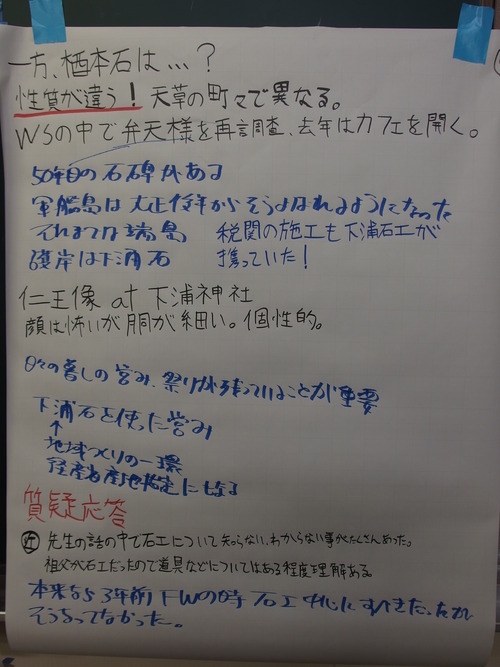 一方、楢本石は…?
性質が違う! 天草の町々で異なる。
WSの中で弁天様を再調査、去年はカフェを開く。
50年目の石碑がある
軍艦島は大正後年からそうよばれるようになった
それまでは端島
護岸は下浦石
税関の施工も下浦石工が
携っていた!
仁王像 at 下浦神社
顔は怖いが胴が細い。個性的。
日々の暮しの営み、祭りが残っていることが重要
下浦石を使った営み
↑
地域づくりの一環
経産省産地指定にもなる
質疑応答
近 先生の話の中で石工について知らない、わからない事がたくさんあった。
祖父が石工だったので道具などについてはある程度理解ある
本来なら3年前FWの時石工中心にすべきだったが
そうなってなかった。